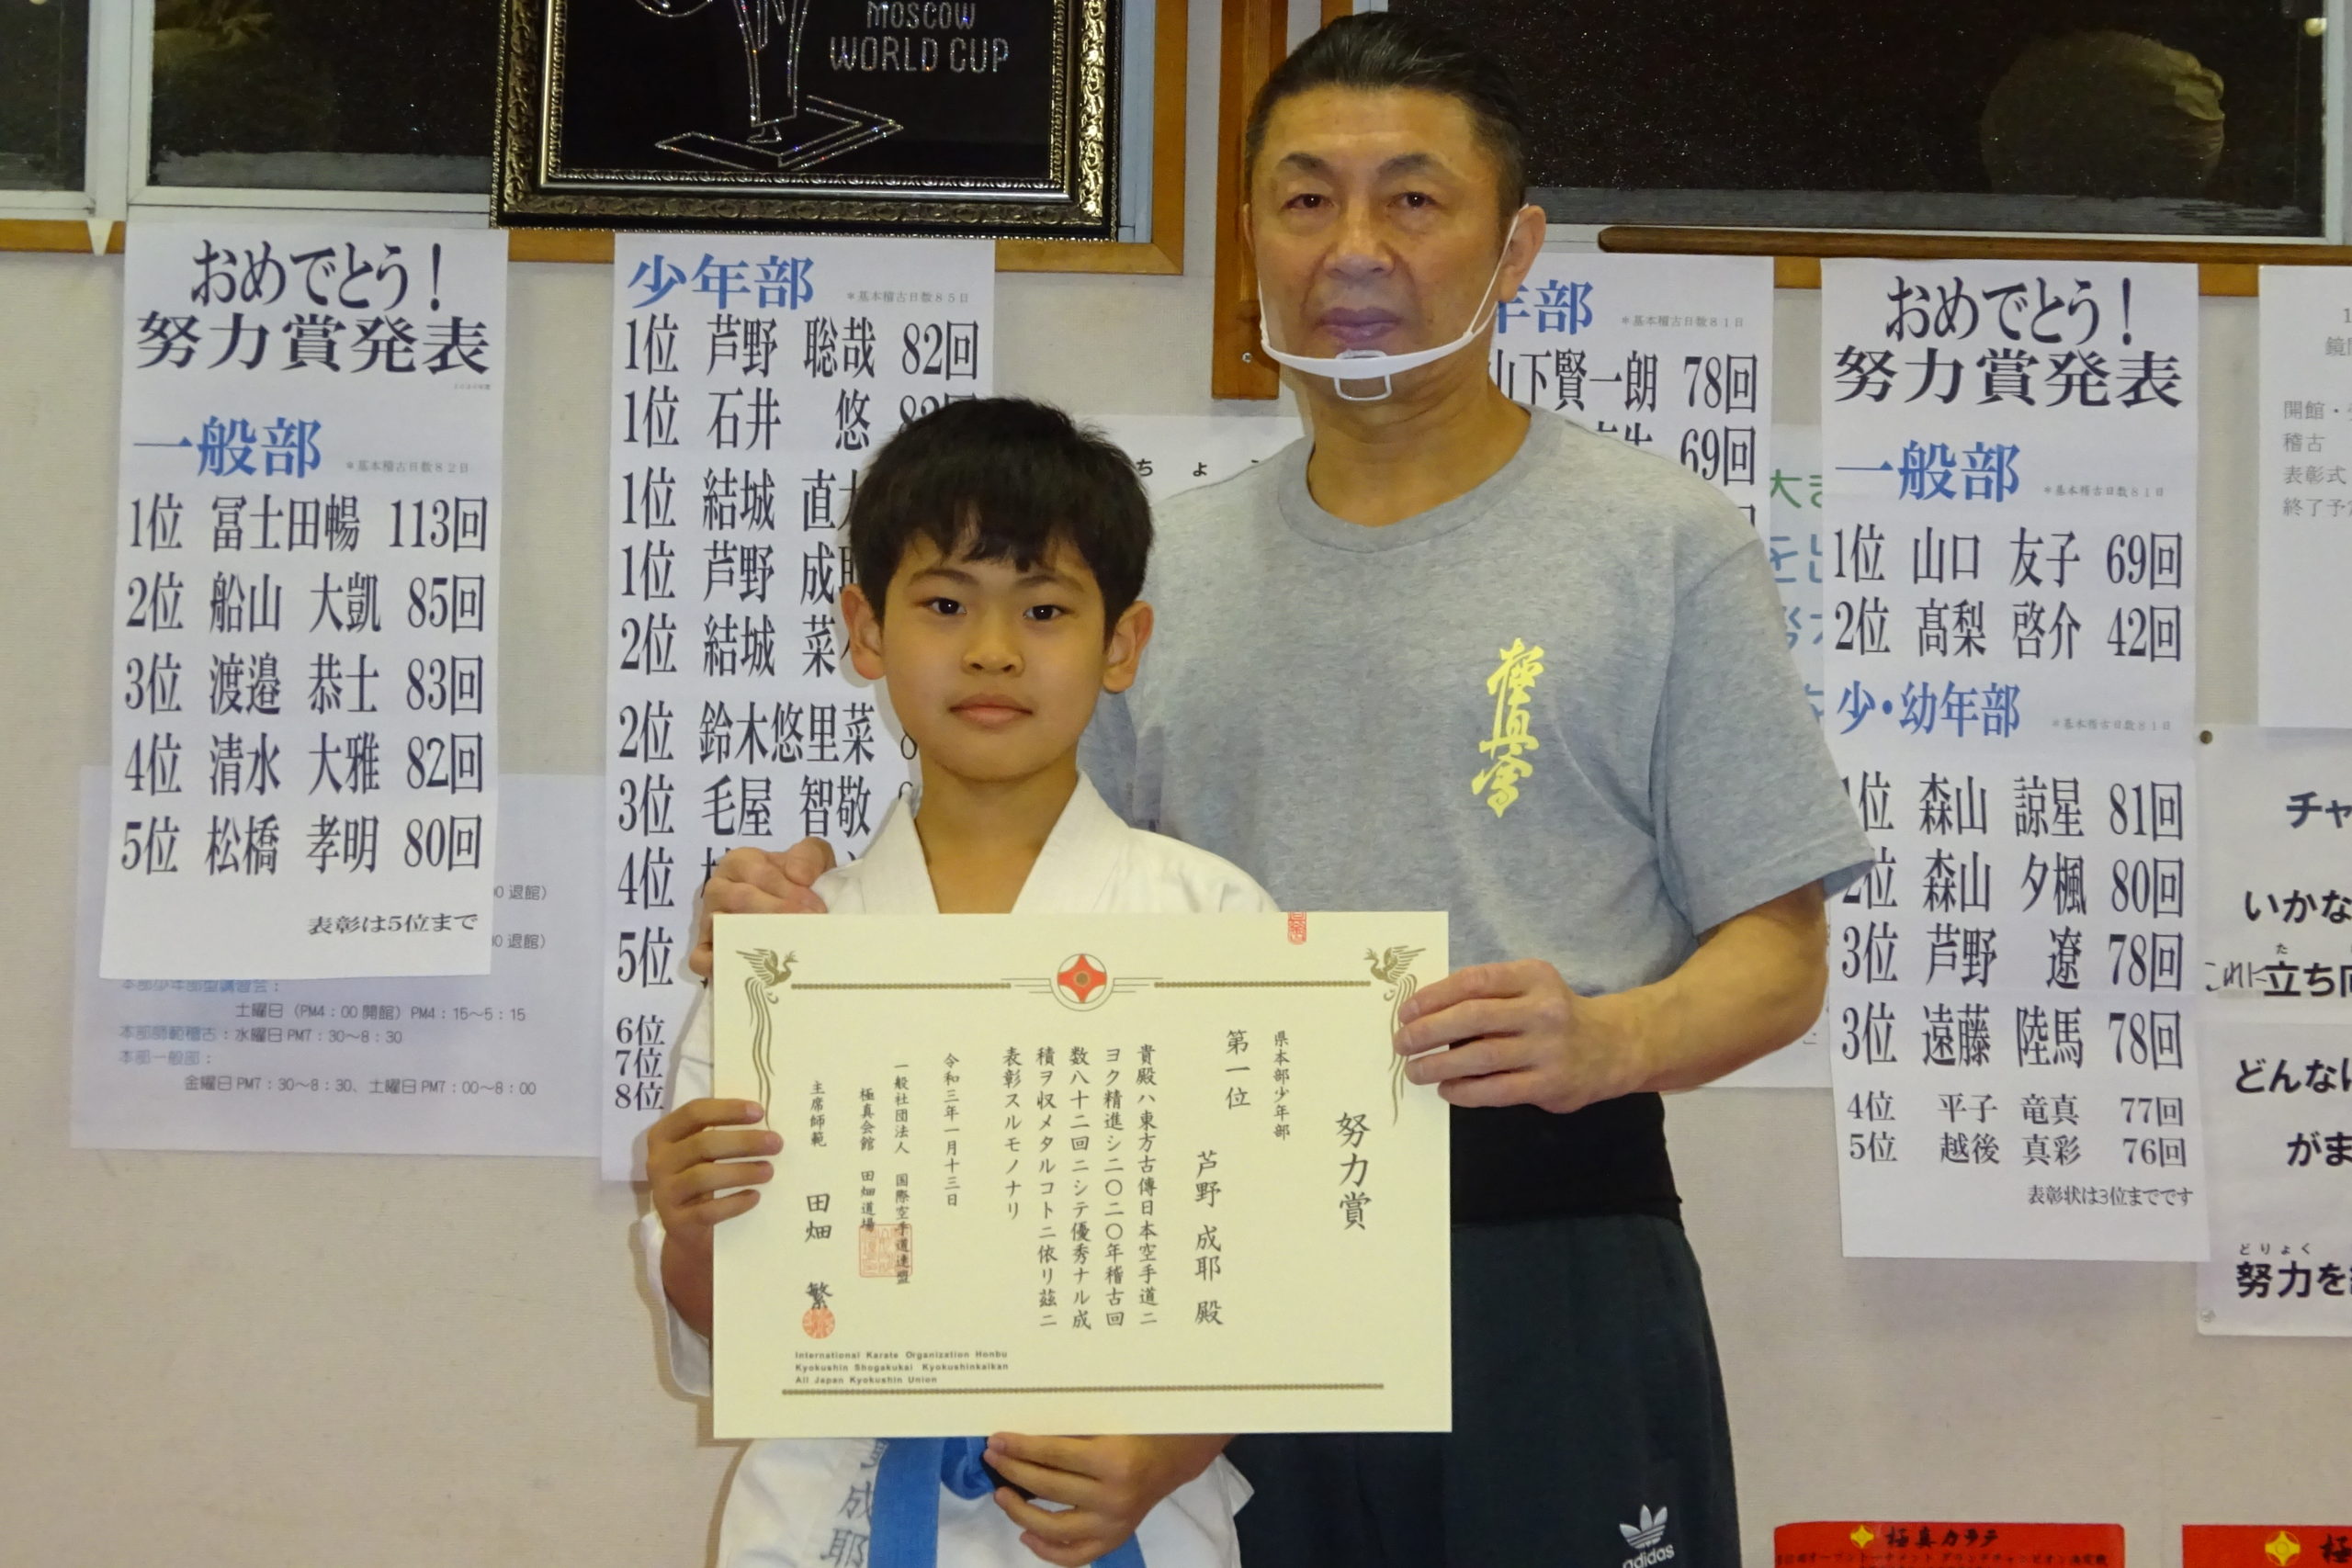 MOSCOW
WORLD CUP
おめでとう!
努力賞発表
一般部 *基本稽古日数82日
1位 冨士田暢 113回
2位 船山 大凱 85回
3位 渡邉 恭士 83回
4位 清水 大雅 82回
5位 松橋 孝明 80回
表彰は5位まで
0 退館)
0 退館)
本部少年部型講習会:
土曜日(PM4:00 開館)PM4:15~5:15
本部師範稽古:水曜日 PM7:30~8:30
本部一般部:
金曜日 PM7:30~8:30、土曜日 PM7:00~8:00
少年部 *基本稽古日数85日
1位 芦野 聡哉 82回
1位 石井 悠 82回
1位 結城 直
1位 芦野 成
2位 結城 菜
2位 鈴木悠里菜
3位 毛屋 智敬
4位
5位
6位
7位
8位
ちょ
年部 *基本稽古日数81日
山下賢一朗 78回
69回
極真会
おめでとう!
努力賞発表
一般部 *基本稽古日数81日
1位 山口 友子 69回
2位 髙梨 啓介 42回
少・幼年部 *基本稽古日数81日
1位 森山 諒星 81回
2位 森山 夕楓 80回
3位 芦野 遼 78回
3位 遠藤 陸馬 78回
4位 平子 竜真 77回
5位 越後 真彩 76回
表彰状は3位までです
開館・
稽古
表彰式
終了予
チャ
いかな
これに立ち向
た
どんなに
がま
どりょく
努力を
努力賞
県本部少年部
第一位
芦野 成耶 殿
貴殿ハ東方古傳日本空手道ニ
ヨク精進シ二〇二〇年稽古回
数八十二回ニシテ優秀ナル成
積ヲ収メタルコトニ依リ茲ニ
表彰スルモノナリ
令和三年一月十三日
一般社団法人 国際空手道連盟
極真会館 田畑道場
主席師範 田畑 繁
International Karate Organization Honbu
Kyokushin Shogakukai Kyokushinkaikan
All Japan Kyokushin Union
成耶
adidas
極真カラテ